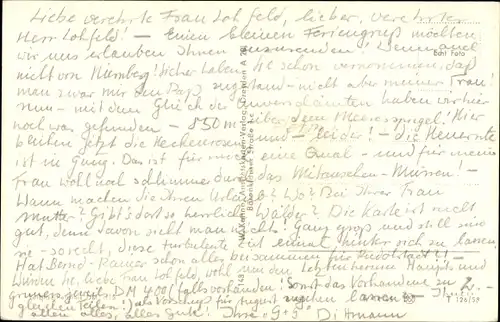 Liebe verehrte Frau Lohfeld, lieber, verehrter
Herr Lohfeld! – Einen kleinen Feriengruß möchten
wir uns erlauben Ihnen zuzusenden! Wenn auch
nicht von Nürnberg! Sicher haben Sie schon vernommen, daß
man zwar mir den Paß zugestand – nicht aber meiner Frau.
nun – mit dem Glück der haben wir hier
noch was gefunden – 850 m über dem Meeresspiegel! Hier
blühen jetzt die Heckenrosen und – leider! – die Heuernte
ist in Gang. Das ist für mich eine Qual – und für meine
Frau wohl noch schlimmer durch das Müssen! –
Wann machen Sie Ihren Urlaub? Wo? Bei Ihrer Frau
Mutter? Gibt's dort so herrliche Wälder? Die Karte ist nicht
gut, denn davon sieht man nicht! Ganz groß und still sind
sie – so recht, diese turbulente Zeit einmal hinter sich zu lassen.
Hat Bernd-Rainer schon alles beisammen für Rudolstadt? ! –
Würden Sie, liebe Frau Lohfeld, wohl nun den Haupt- und
DM 400 (falls vorhanden! Sonst das Vorhandene zu 2
gleichen Teilen! als Vorschuß für August machen lassen –
allem alles, alles Gute! Ihre "G+J" Dittmann
Echt Foto